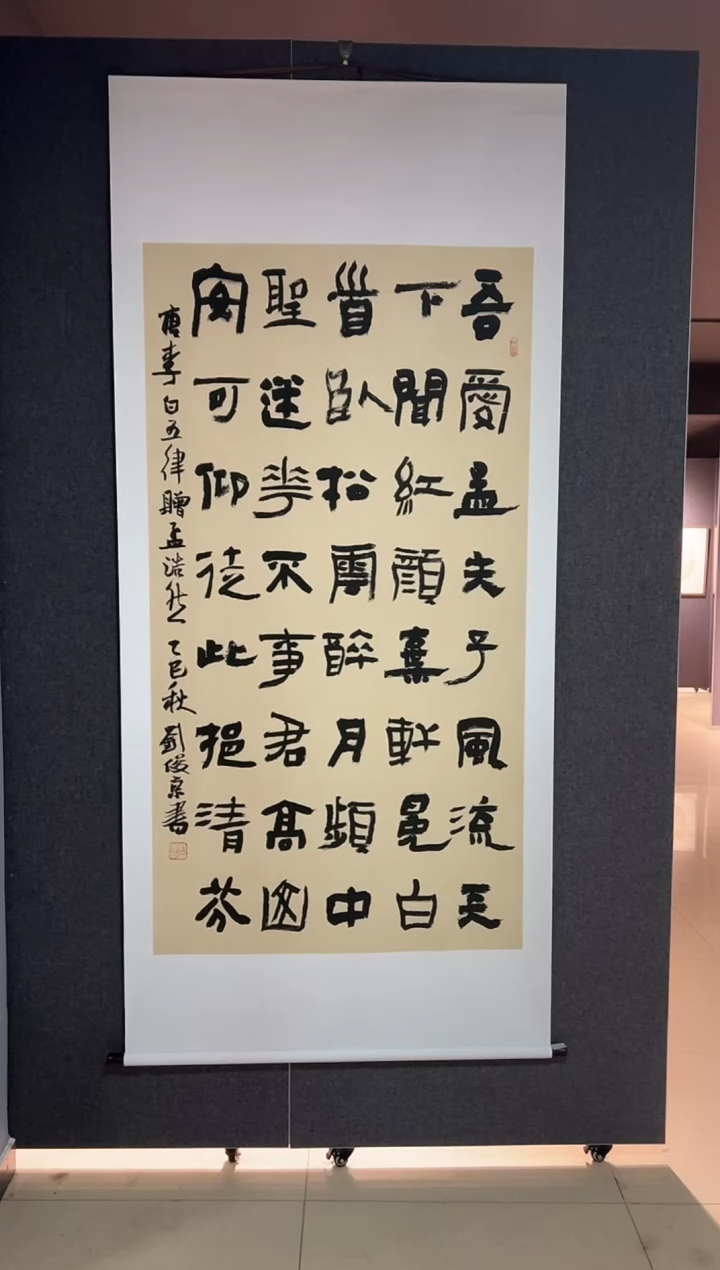 吾愛孟夫子風流天
下聞紅顏棄軒冕白
首臥松雲醉月頻中
聖迷花不事君高山
安可仰徒此挹清芬
唐李白五律贈孟浩然 乙巳秋 劉俊京書